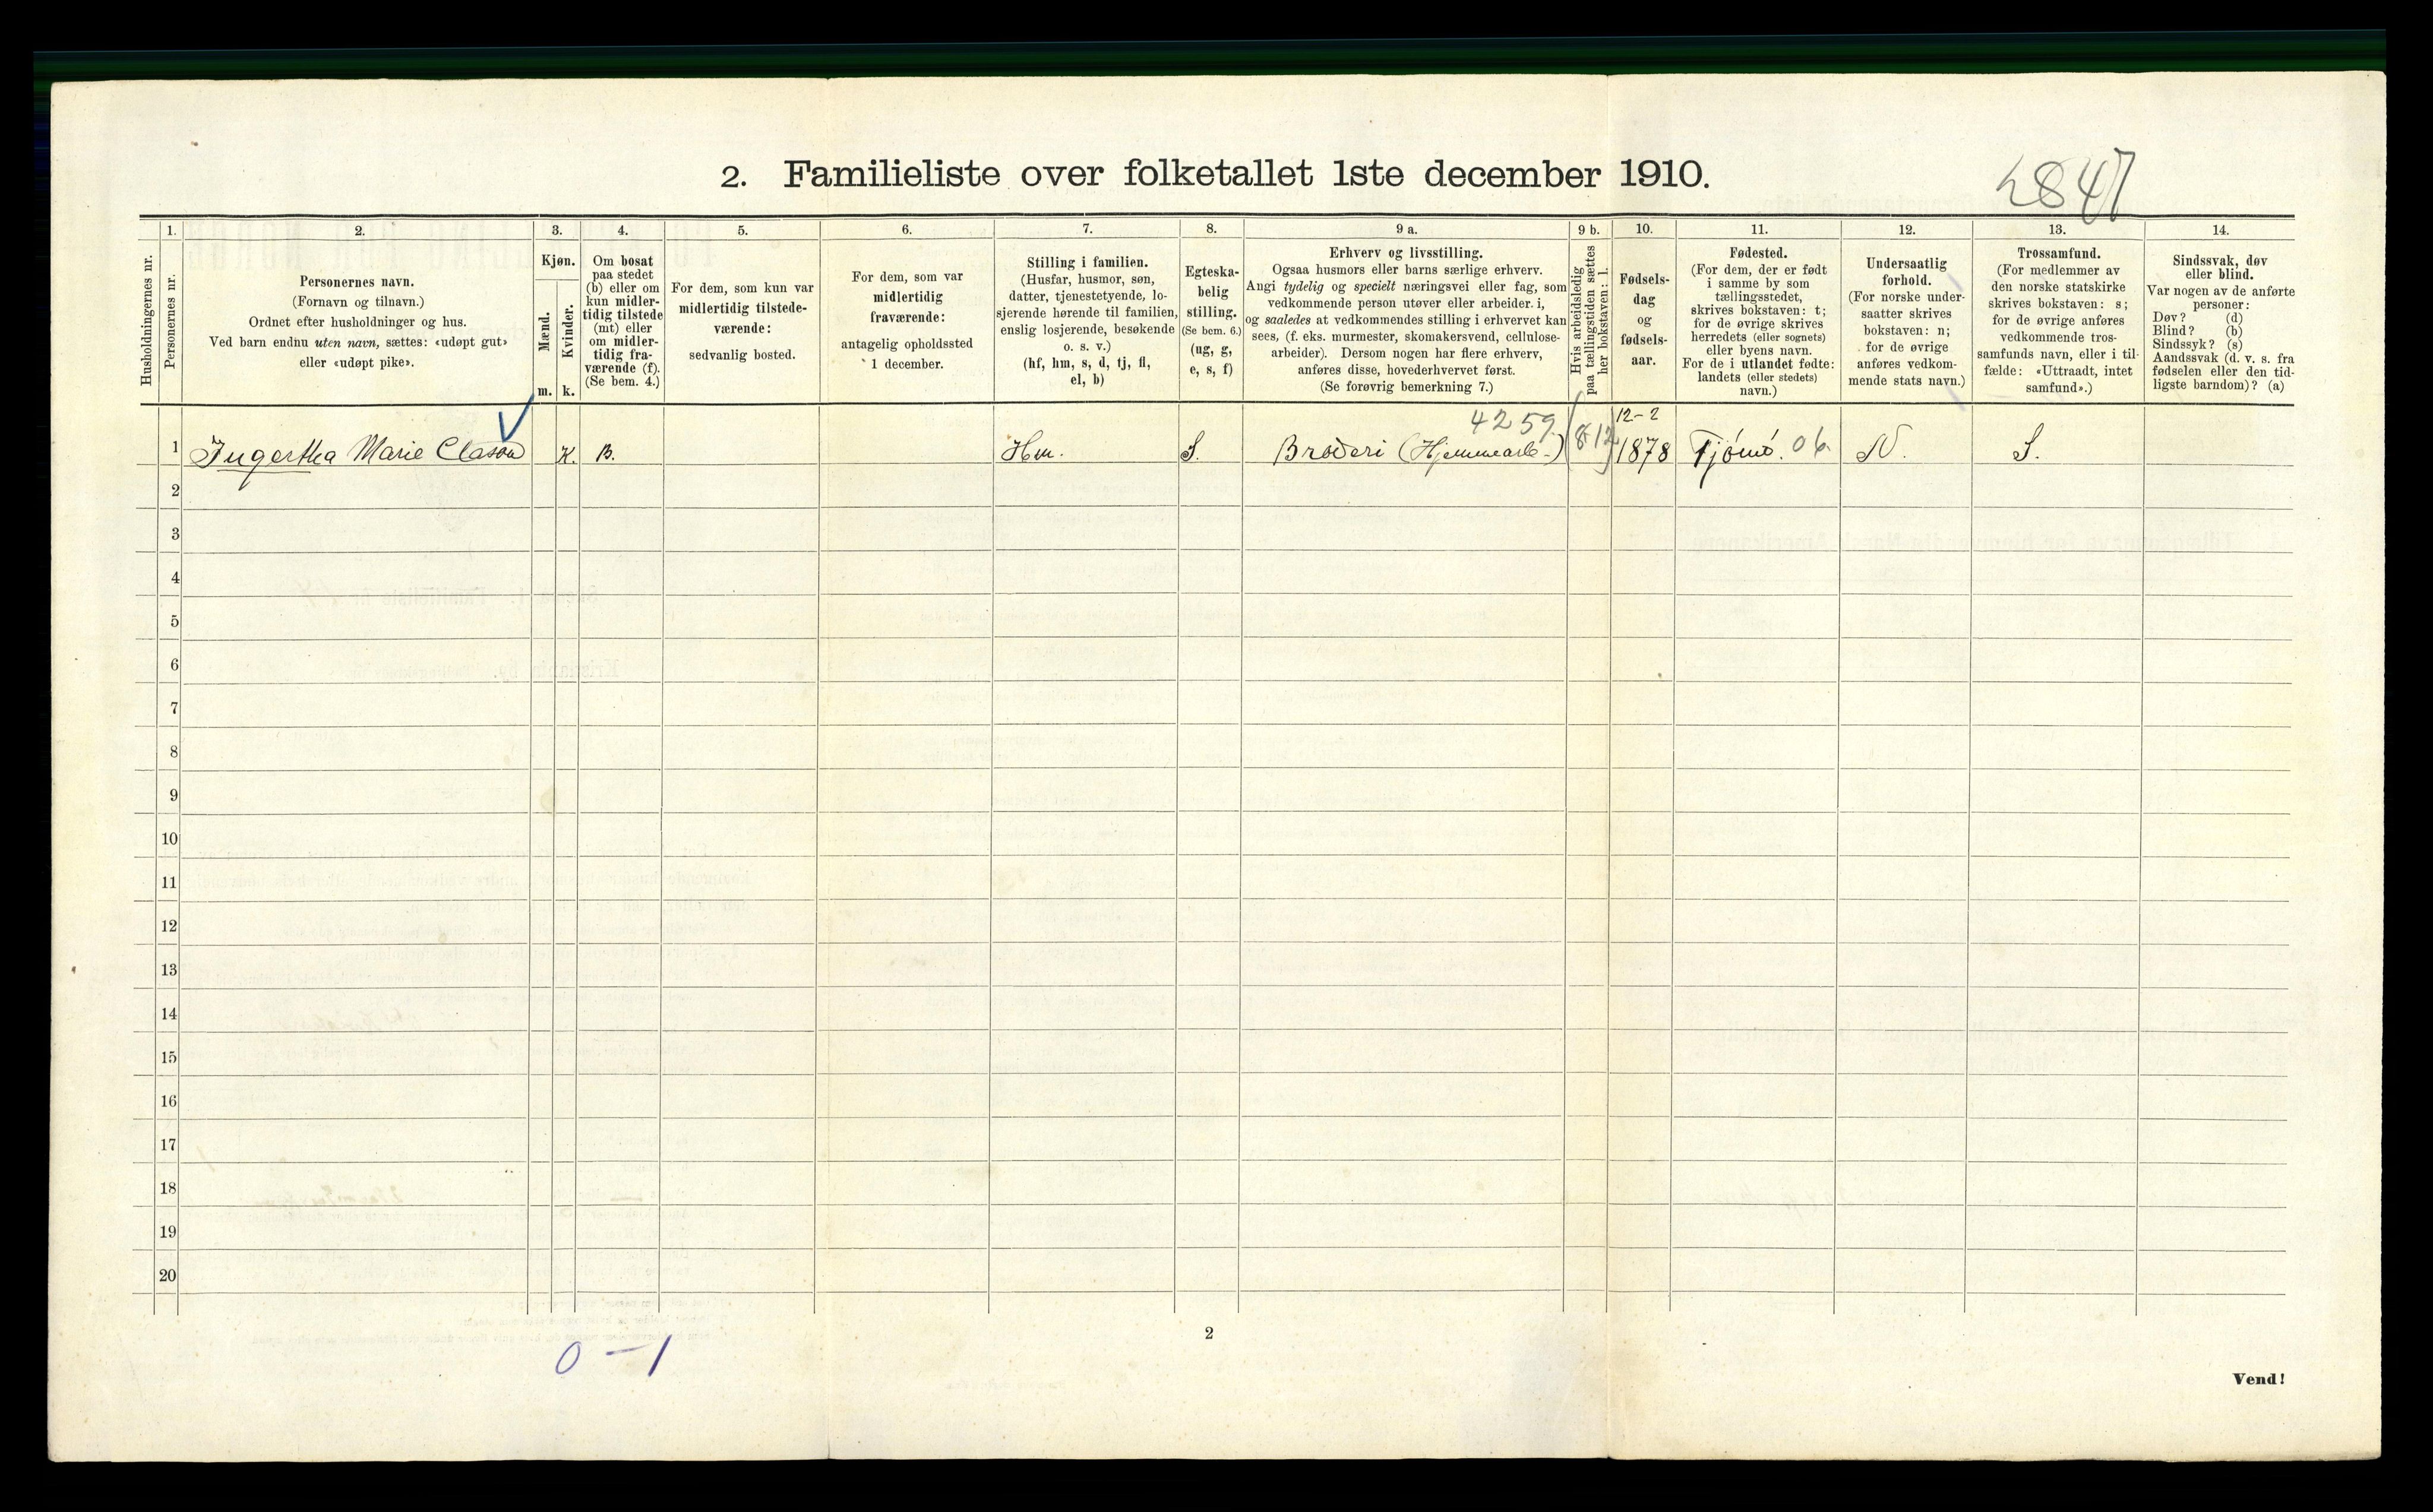 2. Familieliste over folketallet 1ste december 1910.
2847
1. 2. 3. 4. 5. 6. 7. 8. 9 a. 9 b. 10. 11. 12. 13. 14.
Husholdningernes nr.
Personernes nr.
Personernes navn.
(Fornavn og tilnavn.)
Ordnet efter husholdninger og hus.
Ved barn endnu uten navn, sættes: «udøpt gut»
eller «udøpt pike».
Kjøn.
Mænd.
Kvinder.
m. k.
Om bosat
paa stedet
(b) eller om
kun midler-
tidig tilstede
(mt) eller
om midler-
tidig fra-
værende (f).
(Se bem. 4.)
For dem, som kun var
midlertidig tilstede-
værende:
sedvanlig bosted.
For dem, som var
midlertidig
fraværende:
antagelig opholdssted
1 december.
Stilling i familien.
(Husfar, husmor, søn,
datter, tjenestetyende, lo-
sjerende hørende til familien,
enslig losjerende, besøkende
o. s. v.)
(hf, hm, s, d, tj, fl,
el, b)
Egteska-
belig
stilling.
(Se bem. 6.)
(ug, g,
e, s, f)
Erhverv og livsstilling.
Ogsaa husmors eller barns særlige erhverv.
Angi tydelig og specielt næringsvei eller fag, som
vedkommende person utøver eller arbeider i,
og saaledes at vedkommendes stilling i erhvervet kan
sees, (f. eks. murmester, skomakersvend, cellulose-
arbeider). Dersom nogen har flere erhverv,
anføres disse, hovederhvervet først.
(Se forøvrig bemerkning 7.)
Hvis arbeidsledig
paa tællingstiden sættes
her bokstaven: l.
Fødsels-
dag
og
fødsels-
aar.
Fødested.
(For dem, der er født
i samme by som
tællingsstedet,
skrives bokstaven: t;
for de øvrige skrives
herredets (eller sognets)
eller byens navn.
For de i utlandet fødte:
landets (eller stedets)
navn.)
Undersaatlig
forhold.
(For norske under-
saatter skrives
bokstaven: n;
for de øvrige
anføres vedkom-
mende stats navn.)
Trossamfund.
(For medlemmer av
den norske statskirke
skrives bokstaven: s;
for de øvrige anføres
vedkommende tros-
samfunds navn, eller i til-
fælde: «Uttraadt, intet
samfund».)
Sindssvak, døv
eller blind.
Var nogen av de anførte
personer:
Døv? (d)
Blind? (b)
Sindssyk? (s)
Aandssvak (d. v. s. fra
fødselen eller den tid-
ligste barndom)? (a)
4259 12-2
1 Ingertha Marie Clason K. B. Hm. S. Broderi (Hjemmearb.) 1878 Tjömö. 06. N. S.
2
3
4
5
6
7
8
9
10
11
12
13
14
15
16
17
18
19
20
2
0 – 1
Vend!